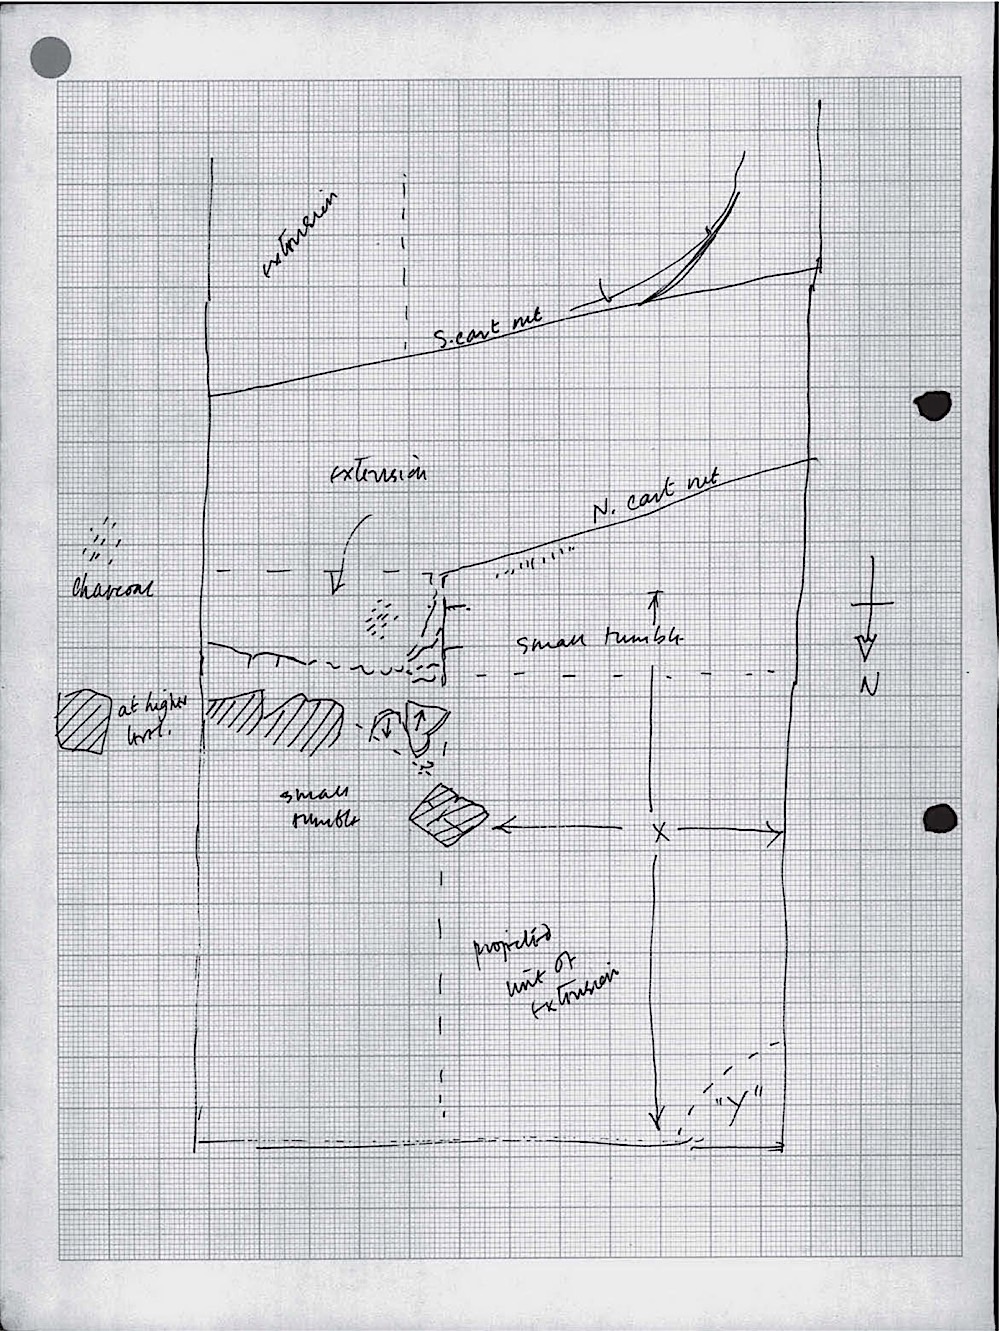 extension
S. cart rut
extension
N. cart rut
Charcoal
small tumble
N
at higher
level.
small
tumble
X
projected
limit of
extension
"Y"